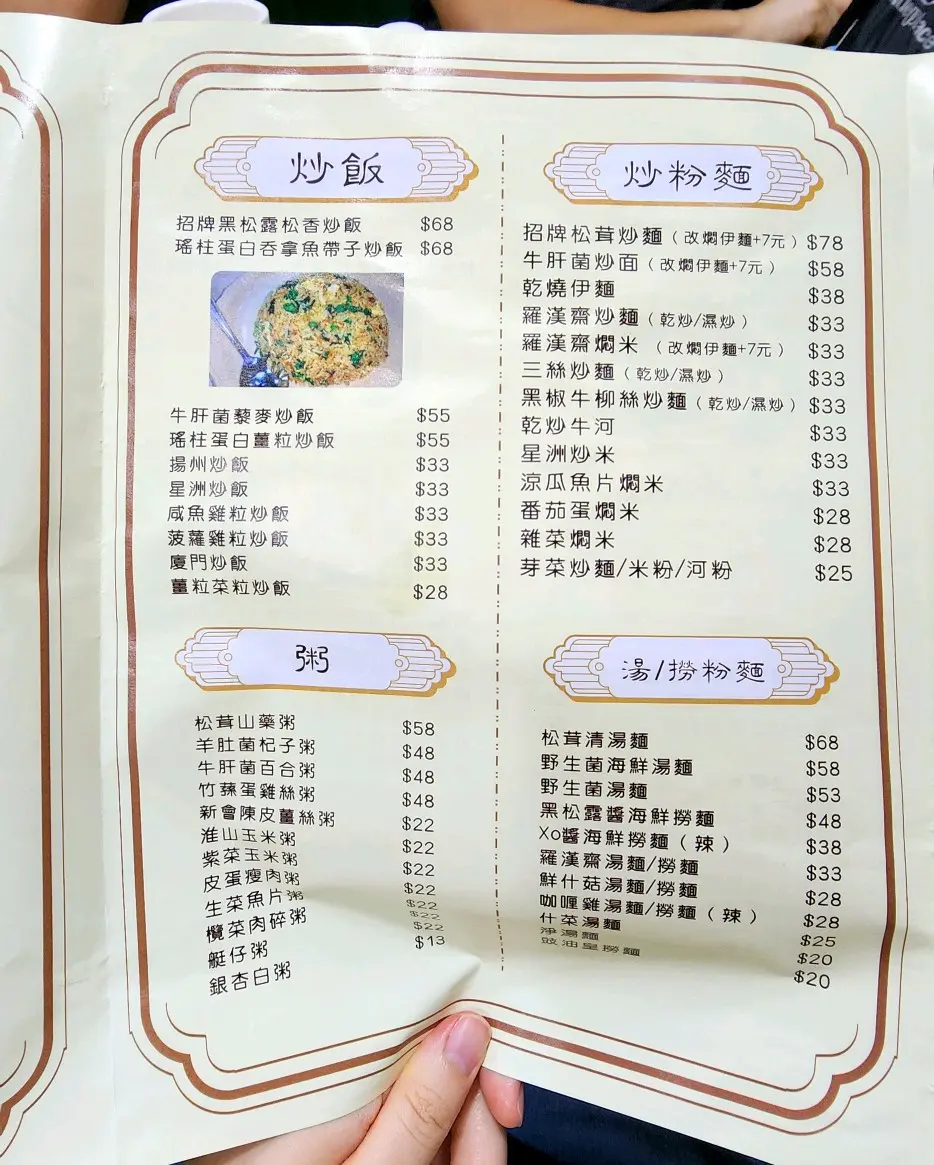 炒飯
招牌黑松露松香炒飯 $68
瑤柱蛋白吞拿魚帶子炒飯 $68
牛肝菌藜麥炒飯 $55
瑤柱蛋白薑粒炒飯 $55
揚州炒飯 $33
星洲炒飯 $33
咸魚雞粒炒飯 $33
菠蘿雞粒炒飯 $33
廈門炒飯 $33
薑粒菜粒炒飯 $28
粥
松茸山藥粥 $58
羊肚菌杞子粥 $48
牛肝菌百合粥 $48
竹蓀蛋雞絲粥 $48
新會陳皮薑絲粥 $22
淮山玉米粥 $22
紫菜玉米粥 $22
皮蛋瘦肉粥 $22
生菜魚片粥 $22
欖菜肉碎粥 $22
艇仔粥 $22
銀杏白粥 $13
炒粉麵
招牌松茸炒麵（改燜伊麵+7元）$78
牛肝菌炒面（改燜伊麵+7元） $58
乾燒伊麵 $38
羅漢齋炒麵（乾炒/濕炒） $33
羅漢齋燜米（改燜伊麵+7元） $33
三絲炒麵（乾炒/濕炒） $33
黑椒牛柳絲炒麵（乾炒/濕炒）$33
乾炒牛河 $33
星洲炒米 $33
涼瓜魚片燜米 $33
番茄蛋燜米 $28
雜菜燜米 $28
芽菜炒麵/米粉/河粉 $25
湯/撈粉麵
松茸清湯麵 $68
野生菌海鮮湯麵 $58
野生菌湯麵 $53
黑松露醬海鮮撈麵 $48
Xo醬海鮮撈麵（辣） $38
羅漢齋湯麵/撈麵 $33
鮮什菇湯麵/撈麵 $28
咖喱雞湯麵/撈麵（辣） $28
什菜湯麵 $25
淨湯麵 $20
豉油皇撈麵 $20